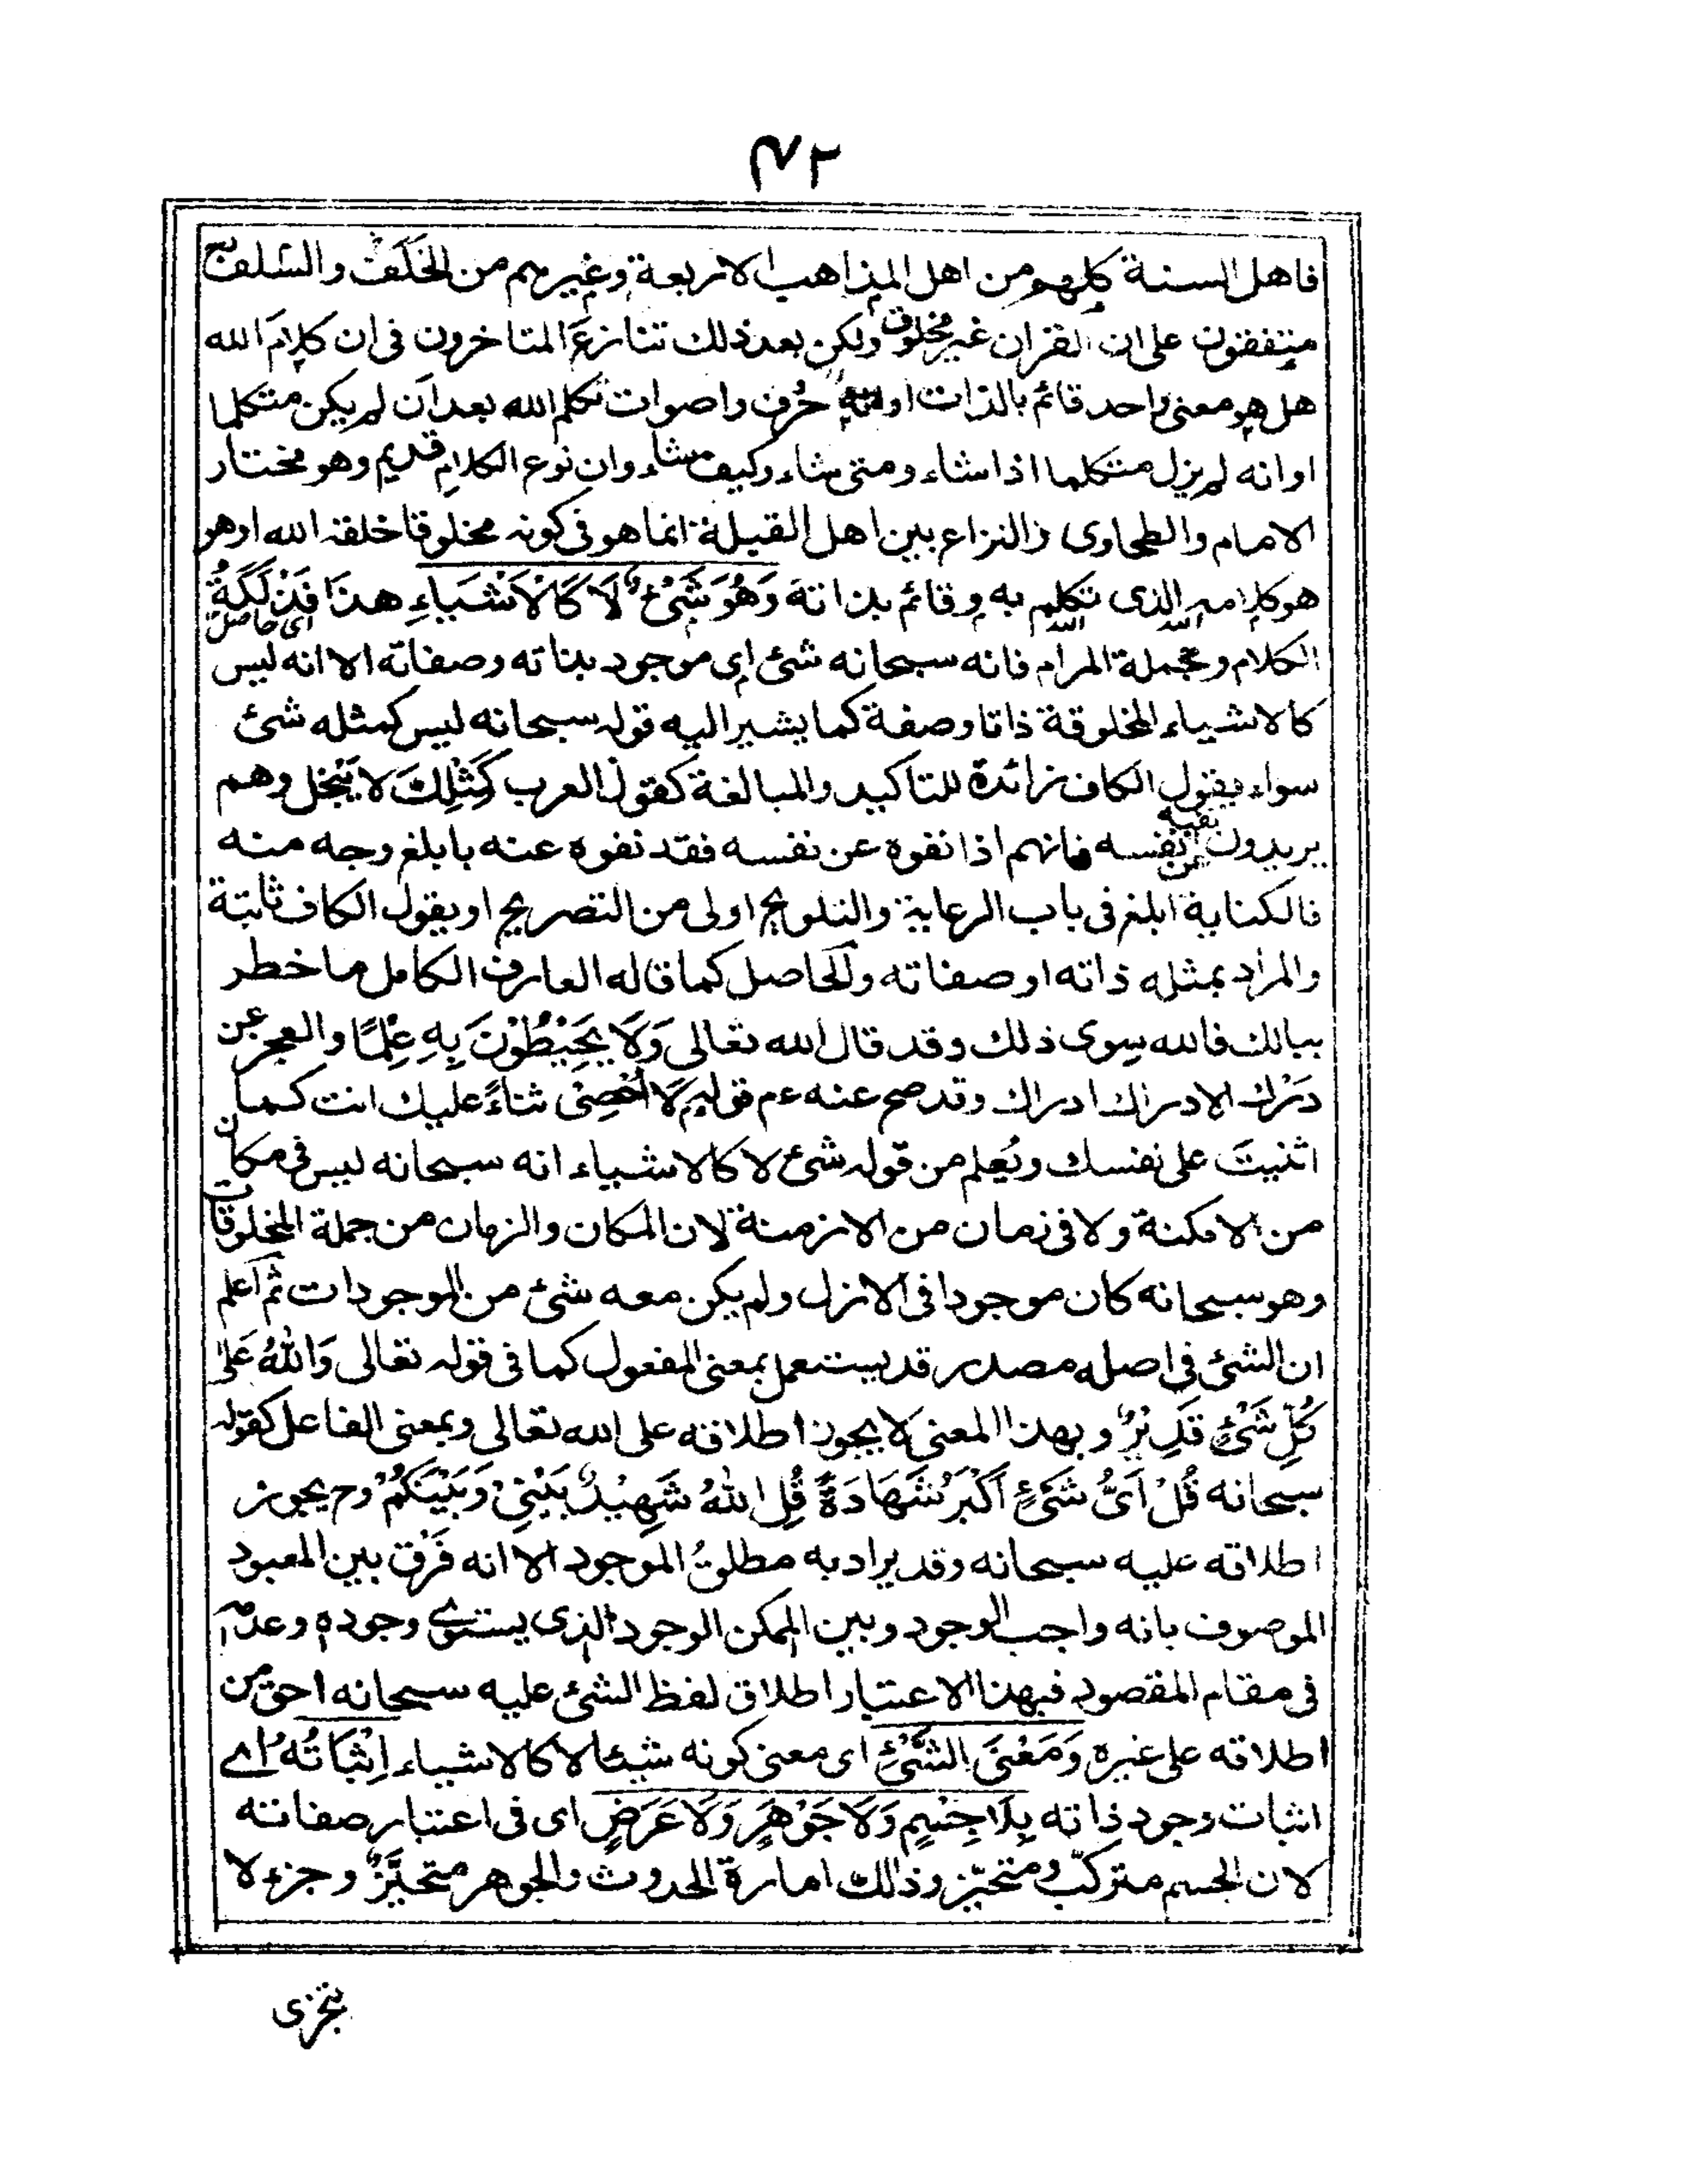 ۴۲
فاهل السنة كلهم من اهل المذاهب الاربعة وغيرهم من الخَلَف والسَّلف
متفقون على ان القران غير مخلوق ولكن بعد ذلك تنازعَ المتاخرون فى ان كلامَ الله
هل هو معنى واحد قائم بالذات او حُرف واصوات تكلم الله بعد اَن لم يكن متكلما
اوانه لم يزل متكلما اذا شاء ومتى شاء وكيف شاء وان نوع الكلام قديم وهو مختار
الامام والطحاوى والنزاع بين اهل القبلة انما هو فى كونه مخلوقا خلقه الله اوهو
هو كلامه الذى تكلم به وقائم بذاته وَهُوَ شَىْءٌ لَا كَالْاَشْيَاءِ هذا فَذْلَكَةُ
اى حاصل
الكلام ومجملة المرام فانه سبحانه شئ اى موجود بذاته وصفاته الا انه ليس
كالاشياء المخلوقة ذاتا وصفة كما يشير اليه قوله سبحانه ليس كمثله شئ
سواء يقول الكاف زائدة للتاكيد والمبالغة كقول العرب كَمِثْلِكَ لا يَبْخل وهم
يريدون نفيه عن نفسه فانهم اذا نفوه عن نفسه فقد نفوه عنه بابلغ وجه منه
فالكناية ابلغ فى باب الرعاية والتلويح اولى من التصريح او يقول الكاف ثابتة
والمراد بمثله ذاته او صفاته والحاصل كما قاله العارف الكامل ما خطر
ببالك فالله سِوى ذلك وقد قال الله تعالى وَلَا يُحِيْطُوْنَ بِهِ عِلْمًا والعجز عن
دَرْك الادراك ادراك وقد صح عنه عم قوله لَا اُحْصِىْ ثناءً عليك انت كما
اثنيتَ على نفسك ويُعلم من قوله شئ لا كالاشياء انه سبحانه ليس فى مكان
من الامكنة ولا فى زمان من الازمنة لان المكان والزمان من جملة المخلوقات
وهو سبحانه كان موجودا فى الازل ولم يكن معه شئ من الموجودات ثم اعلم
ان الشئ فى اصله مصدر قد يستعمل بمعنى المفعول كما فى قوله تعالى وَاللهُ عَلىٰ
كُلِّ شَىْءٍ قَدِيْرٌ وبهذا المعنى لا يجوز اطلاقه على الله تعالى وبمعنى الفاعل كقوله
سبحانه قُلْ اَىُّ شَىْءٍ اَكْبَرُ شَهَادَةً قُلِ اللهُ شَهِيْدٌ بَيْنِىْ وَبَيْنَكُمْ وح يجوز
اطلاقه عليه سبحانه وقد يراد به مطلقُ الموجود الا انه فَرْق بين المعبود
الموصوف بانه واجب الوجود وبين الممكن الوجود الذى يستوى وجوده وعدمه
فى مقام المقصود فبهذا الاعتبار اطلاق لفظ الشئ عليه سبحانه احق من
اطلاقه على غيره وَمَعْنَى الشَّىْءِ اى معنى كونه شيئا لا كالاشياء اِثْبَاتُهُ اے
اثبات وجود ذاته بِلَا جِسْمٍ وَلَا جَوْهَرٍ وَلَا عَرَضٍ اى فى اعتبار صفاته
لان الجسم متركّب ومتحيّز وذلك امارة الحدوث والجوهر متحيِّزٌ وجزء لا
يتجزى